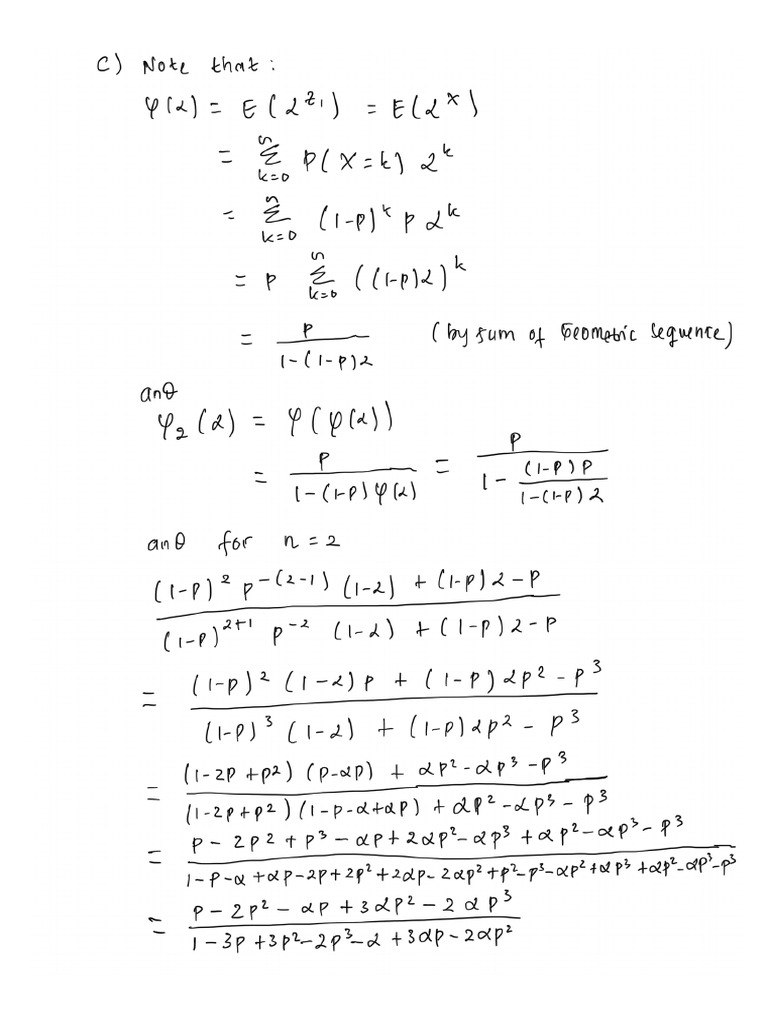 c) Note that:
φ(α) = E(α^{Z_1}) = E(α^X)
= Σ_{k=0}^{∞} P(X=k) α^k
= Σ_{k=0}^{∞} (1-p)^k p α^k
= p Σ_{k=0}^{∞} ((1-p)α)^k
= p / (1-(1-p)α) (by sum of Geometric sequence)
and
φ_2(α) = φ(φ(α))
= p / (1-(1-p)φ(α)) = p / (1 - (1-p)p / (1-(1-p)α))
and for n = 2
((1-p)^2 p^{-(2-1)} (1-α) + (1-p)α - p) / ((1-p)^{2+1} p^{-2} (1-α) + (1-p)α - p)
= ((1-p)^2 (1-α)p + (1-p)αp^2 - p^3) / ((1-p)^3 (1-α) + (1-p)αp^2 - p^3)
= ((1-2p+p^2)(p-αp) + αp^2 - αp^3 - p^3) / ((1-2p+p^2)(1-p-α+αp) + αp^2 - αp^3 - p^3)
= (p - 2p^2 + p^3 - αp + 2αp^2 - αp^3 + αp^2 - αp^3 - p^3) / (1-p-α+αp-2p+2p^2+2αp-2αp^2+p^2-p^3-αp^2+αp^3+αp^2-αp^3-p^3)
= (p - 2p^2 - αp + 3αp^2 - 2αp^3) / (1-3p+3p^2-2p^3-α+3αp-2αp^2)